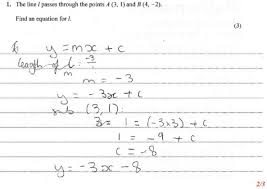 1. The line l passes through the points A (3, 1) and B (4, −2).
Find an equation for l.
(3)
y = mx + c
length of l: -3
m
m = -3
y = -3x + c
sub (3, 1):
3= 1 = (-3x3) + c
1 = -9 + c
c = -8
y = -3x -8
2/3